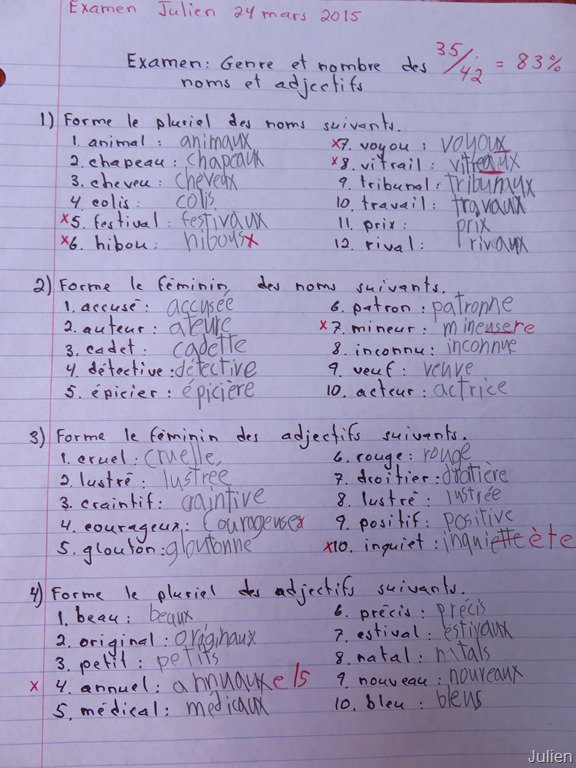 Examen Julien 24 mars 2015
Examen: Genre et nombre des 35/42 = 83%
noms et adjectifs
1) Forme le pluriel des noms suivants.
1. animal : animaux x7. voyou : voyoux
2. chapeau : chapeaux x8. vitrail : vitreaux
3. cheveu : cheveux 9. tribunal : tribunaux
4. colis : colis 10. travail : travaux
x5. festival : festivaux 11. prix : prix
x6. hibou : hibousx 12. rival : rivaux
2) Forme le féminin des noms suivants.
1. accusé : accusée 6. patron : patronne
2. auteur : ateure x7. mineur : mineusere
3. cadet : cadette 8. inconnu : inconnue
4. détective : détective 9. veuf : veuve
5. épicier : épicière 10. acteur : actrice
3) Forme le féminin des adjectifs suivants.
1. cruel : cruelle 6. rouge : rouge
2. lustré : lustrée 7. droitier : droitière
3. craintif : craintive 8. lustré : lustrée
4. courageux : courageusex 9. positif : positive
5. glouton : gloutonne x10. inquiet : inquietteète
4) Forme le pluriel des adjectifs suivants.
1. beau : beaux 6. précis : précis
2. original : originaux 7. estival : estivaux
3. petit : petits 8. natal : nitals
x 4. annuel : annuauxels 9. nouveau : nouveaux
5. médical : médicaux 10. bleu : bleus
Julien